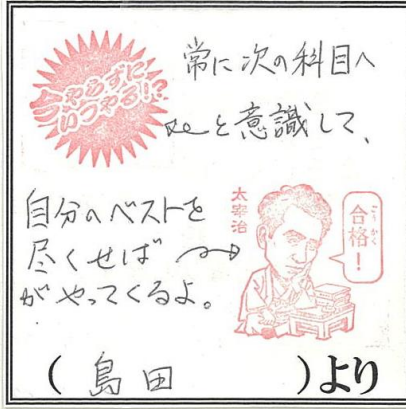 今やらずに
いつやる!?
常に次の科目へ
と意識して、
自分のベストを
尽くせば
がやってくるよ。
太宰治
ごうかく
合格!
(島田)より